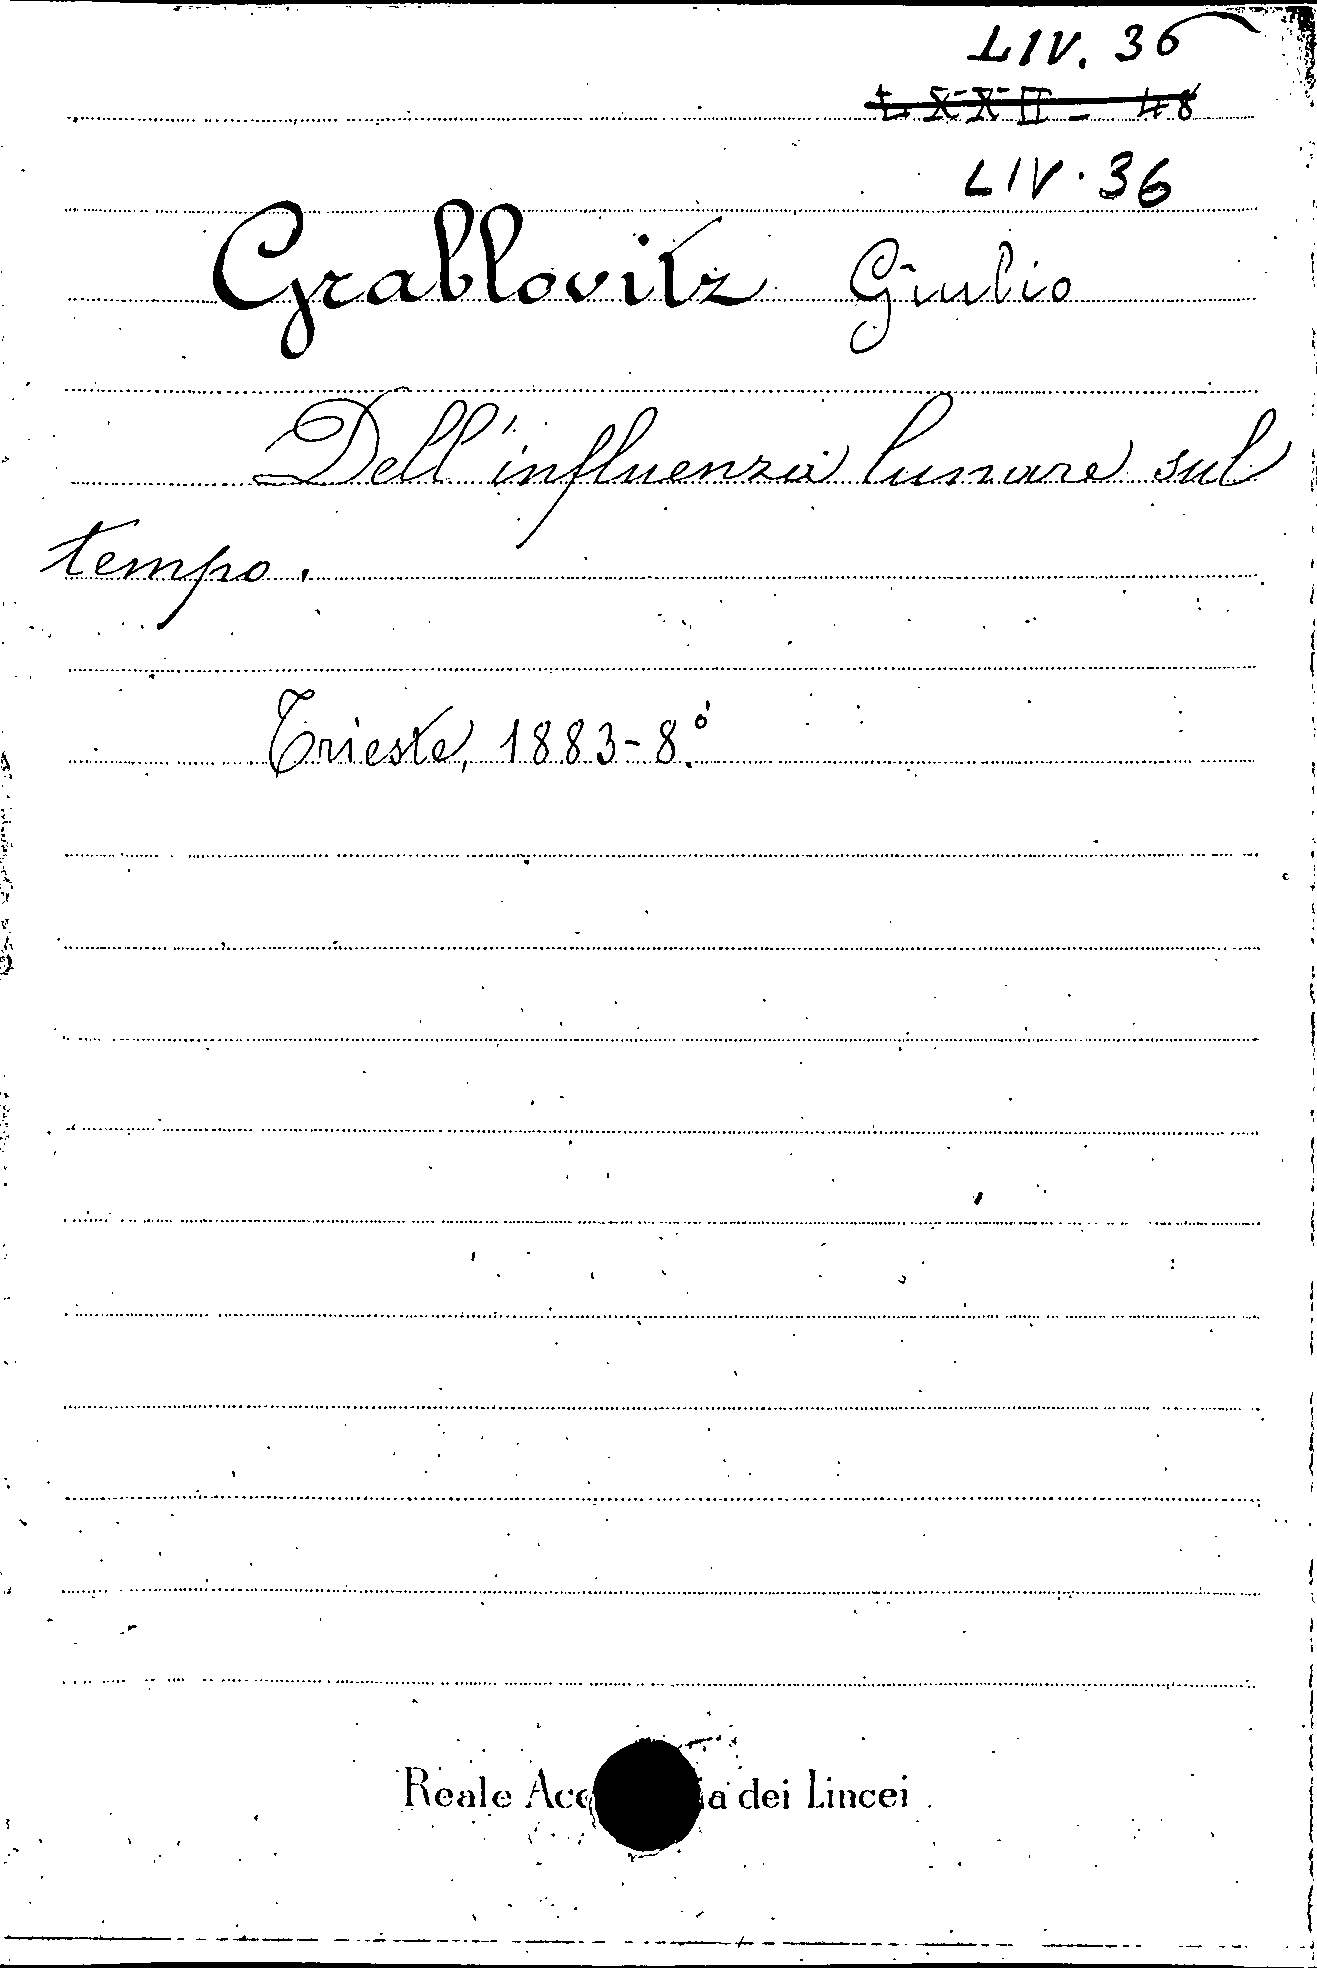 LIV. 36
LXXII - 48
LIV. 36
Grablovitz Giulio
Dell'influenza lunare sul
tempo.
Trieste, 1883-8.º
Reale Acc a dei Lincei